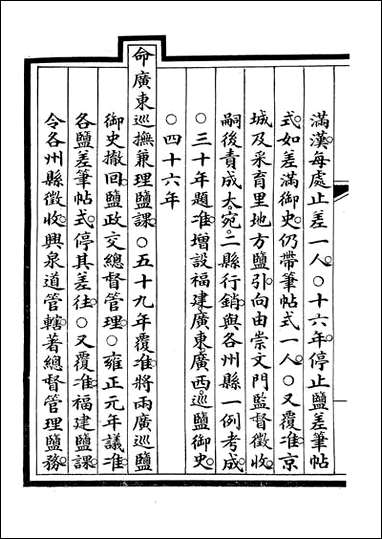 滿漢每處止差一人○十六年停止鹽差筆帖
式如差滿御史仍帶筆帖式一人○又覆准京
城及采育里地方鹽引向由崇文門監督徵收
嗣後責成太宛二縣行銷與各州縣一例考成
○三十年題准增設福建廣東廣西巡鹽御史
○四十六年
命廣東巡撫兼理鹽課○五十九年覆准將兩廣巡鹽
御史撤回鹽政交總督管理○雍正元年議准
各鹽差筆帖式停其差往○又覆准福建鹽課
令各州縣徵收興泉道管轄著總督管理鹽務